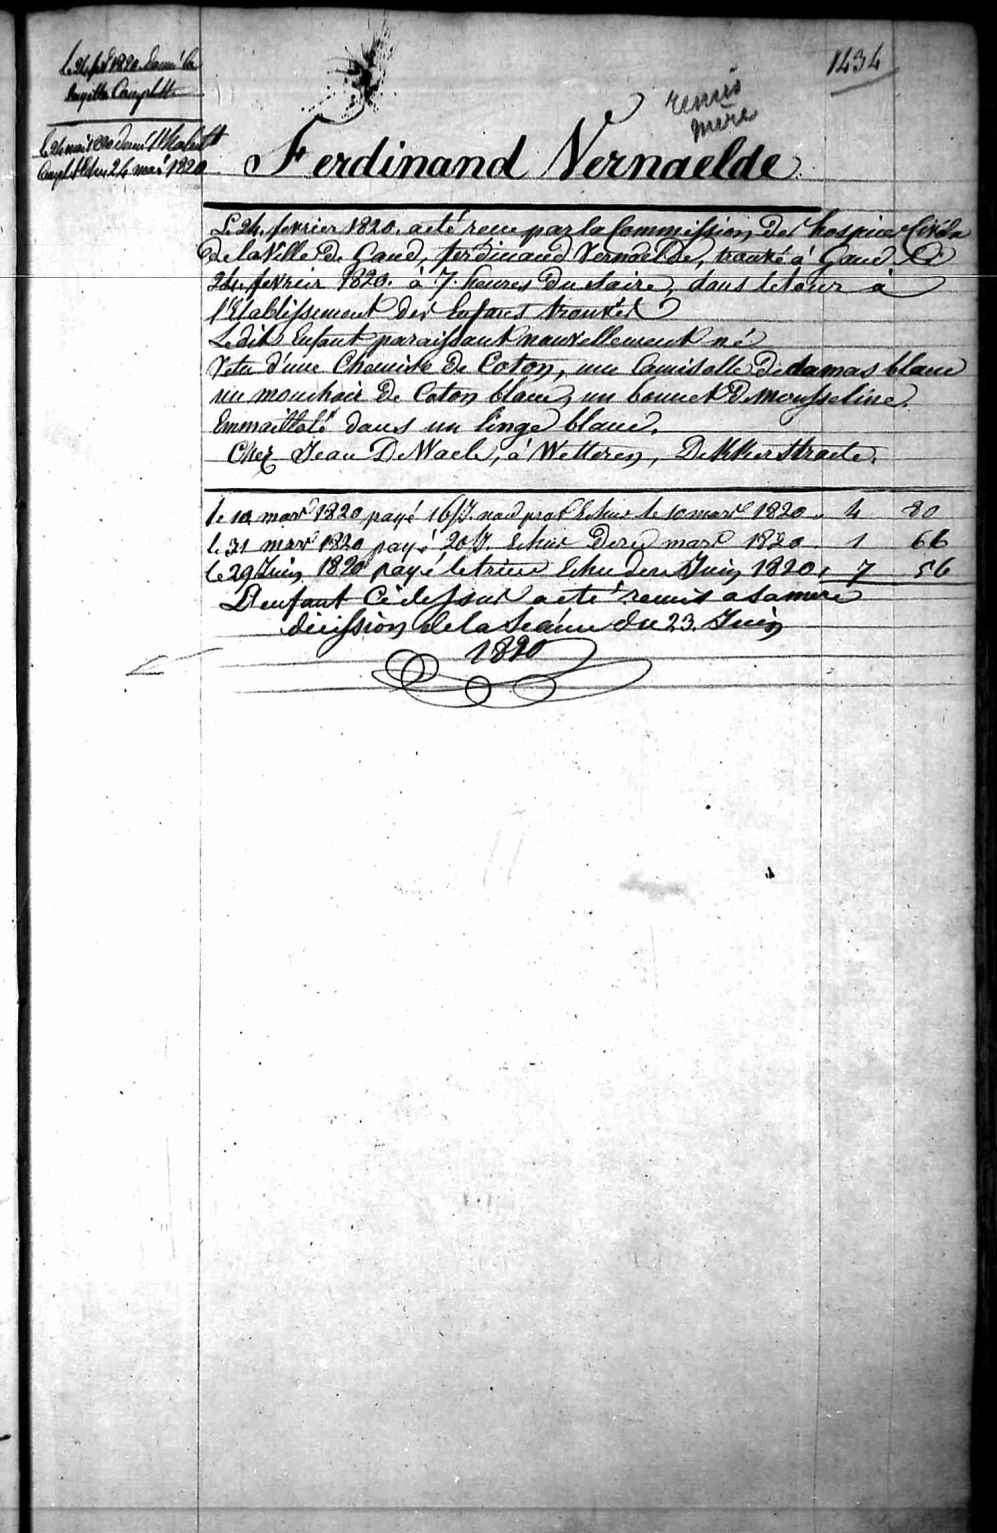 1434
Le 24 fév 1820. donné la
layette Complette
remis
mère
Complette 24 mars 1820
Ferdinand Vernaelde.
Le 24. fevrier 1820. a été recu par la Commission des hospices Civils
de la Ville de Gand, ferdinand Vernaelde, trouvé à Gand le
24 fevrier 1820. à 7. heures du soire, dans le tour à
l'Etablissement des Enfans trouvés
Ledit Enfant paraissant nouvellement né
Vetu d'une Chemise de Coton, une Camisolle de damas blanc
un mouchoir de Coton blanc, un bonnet de Mousseline.
Emmaillolé dans un linge blanc.
Chez Jean De Waele, à Wetteren, Dekkerstraete.
le 10 mars 1820 payé 16 J. Echus le 10 mars 1820. 4 80
le 31 mars 1820 payé 20 J. Echus mars 1820 1 66
le 29 Juin 1820 payé le Echu Juin 1820, 7 56
L'enfant Cidessus a eté remis a sa mere
décission de la Séance du 23. Juin
1820